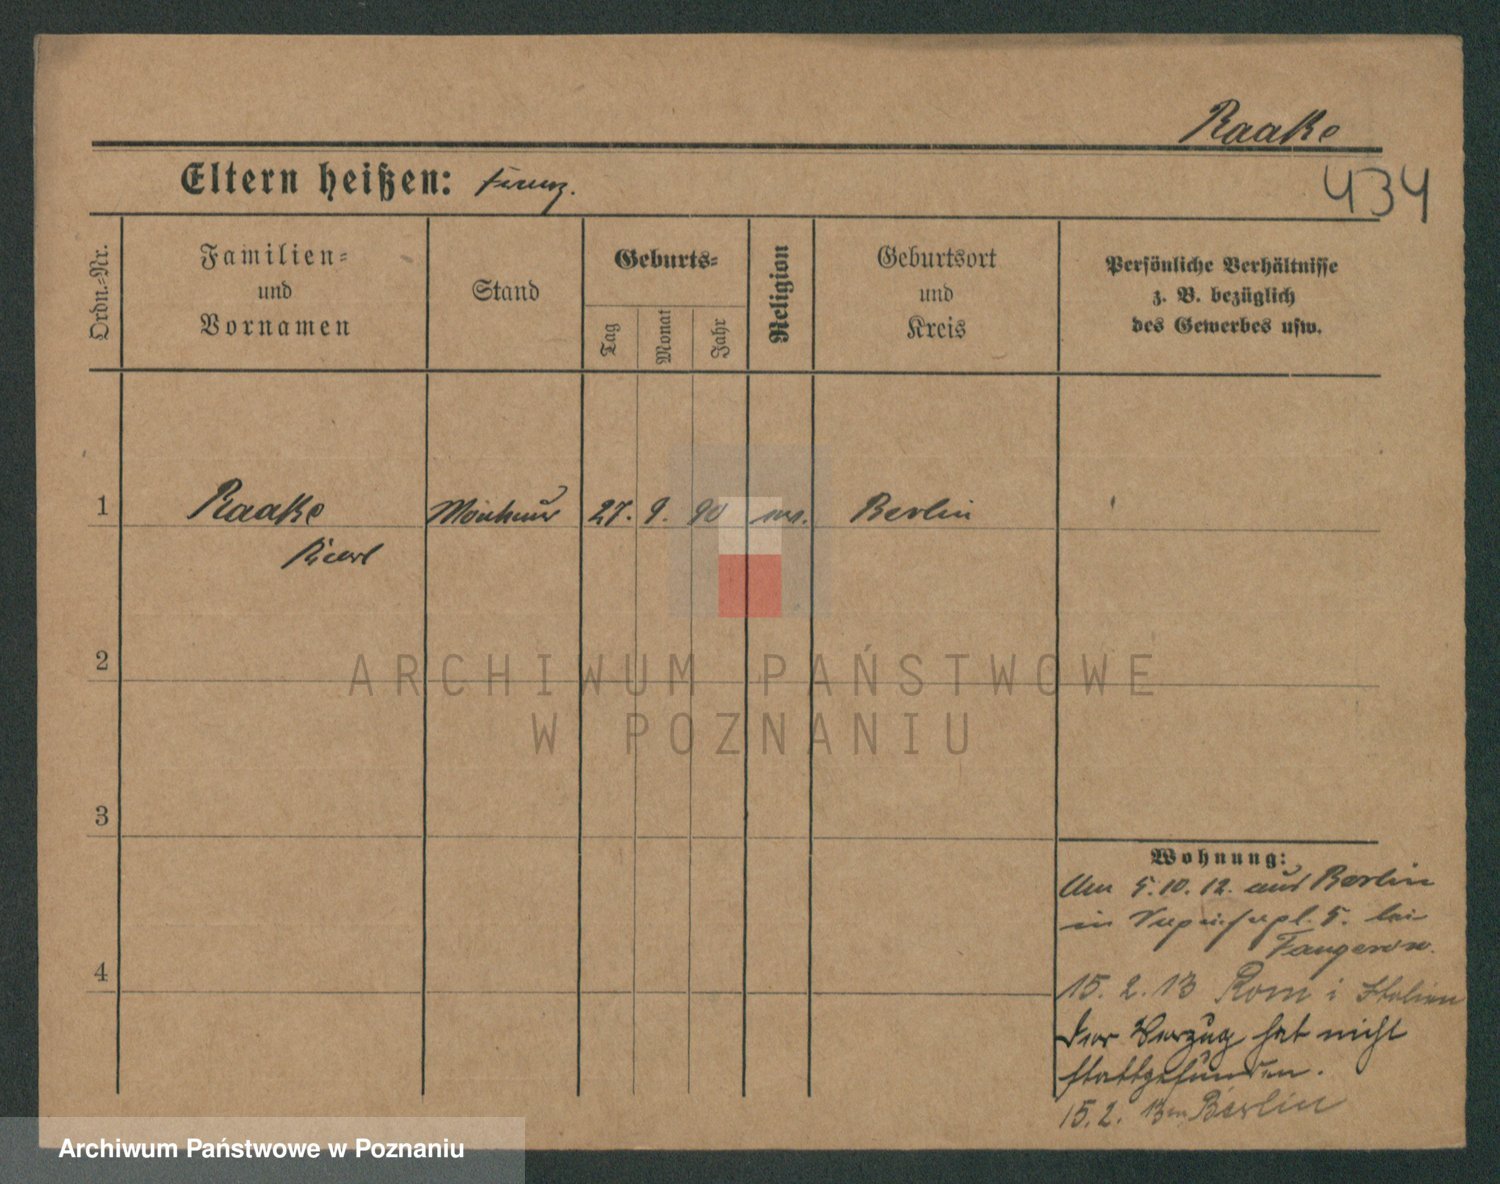 Raake
434
Eltern heißen: Franz.
Ordn.-Nr.
Familien-
und
Vornamen
Stand
Geburts-
Tag
Monat
Jahr
Religion
Geburtsort
und
Kreis
Persönliche Verhältnisse
z. B. bezüglich
des Gewerbes usw.
1
Raake
27. 9. 90
Berlin
2
3
4
Wohnung:
Am 5. 10. 12. aus Berlin
in 5. bei
15. 2. 13 Rom i Italien
Der Verzug hat nicht
stattgefunden.
15. 2. 13 Berlin
ARCHIWUM PAŃSTWOWE
W POZNANIU
Archiwum Państwowe w Poznaniu